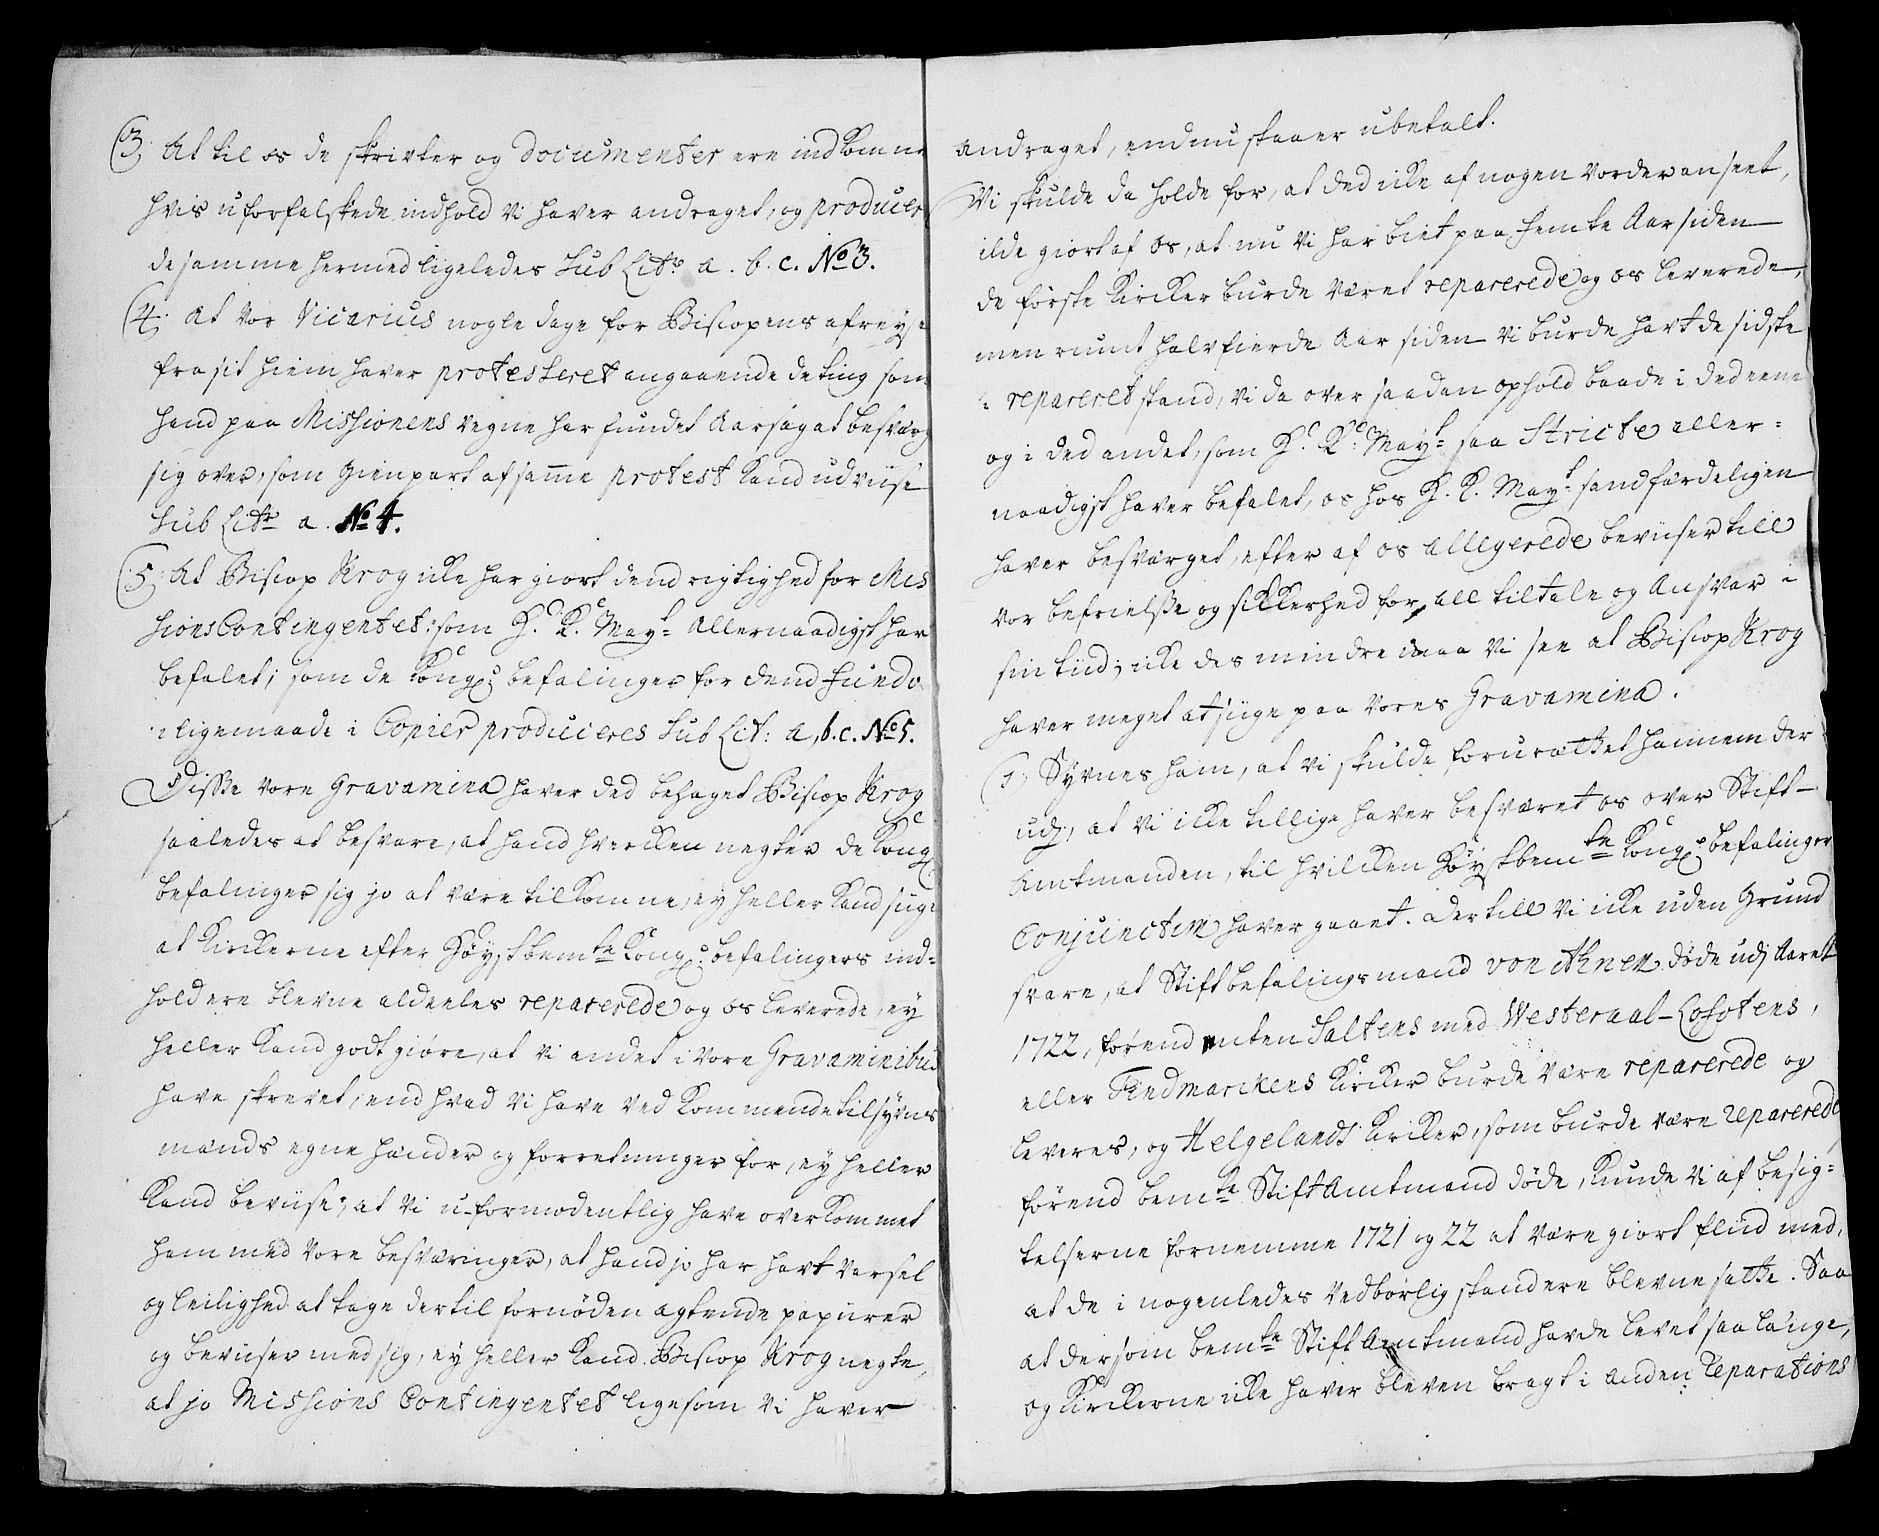 3, At til os de skrivter og documenter ere indkomne
hvis uforfalskede indhold vi haver andraget, og producer
de samme hermed ligeledes sub Litr: a. b. c. No 3.
4, At Vor Vicarius nogle dage for Biscopens afreyse
fra sit hiem haver protesteret angaaende de ting som
hand paa Missionens vegne har fundet Aarsag at besvære
sig over, som gienpart af samme protest kand udviise
sub Litr a. No 4.
5, At Biscop Krog icke har giort dend rigtighed for Mis
sions Contingentet: som H. K. Mayt Allernaadigst har
befalet; som de Kongl: befalinger for dend fundo
i ligemaade i Copier produceres sub Lit: a, b. c. No 5.
Disse vore Gravamina haver ded behaget Biscop Krog
saaledes at besvare, at hand hvercken negter de Kongl
befalinger sig jo at være tilkomne, ey heller kand siige
at Kirckerne efter Høystbemte Kongl: befalingers ind-
hold ere blevne aldeeles reparerede og os leverede, ey
heller kand godtgiøre, at vi andet i vore Gravaminibus
have skrevet, end hvad vi have ved kommende tilsyns
mænds egne hænder og forretninger for, ey heller
kand beviise, at vi u-formodentlig have overkommet
ham med vore besværinger, at hand jo har havt varsel
og leilighed at tage dertil fornøden agtende papiirer
og beviiser med sig, ey heller kand Biscop Krog negte,
at jo Missions Contingentet ligesom vi haver
andraget, endnu staaer ubetalt.
Vi skulde da holde for, at ded icke af nogen vorder anseet,
ilde giort af os, at nu vi har biet paa femte Aar siden
de første kircker burde været reparerede og os leverede,
men rumt halvfierde Aar siden vi burde havt de sidste
i repareret stand, vi da over saadan ophold baade i ded eene
og i ded andet, som H. K. Mayt saa Stricte aller-
naadigst haver befalet, os hos H. K. Mayt sandfærdeligen
haver besværget, efter af os allegerede beviiser till
vor befrielse og sikkerhed for all tiltale og Ansvar i
sin tiid; icke des mindre maa vi see at Biscop Krog
haver meget at siige paa vores Gravamina.
1, Synes ham, at vi skulde foruretthet hannem der
udj, at vi icke tillige haver besværet os over Stift-
Amtmanden, til hvilcken Høystbemte Kongl: befalinger
Conjunctim haver gaaet. Dertill vi icke uden Grund
svare, at Stiftbefalingsmand von Ahnen døde udj Aaret
1722, førend enten Saltens med Westeraal-Lofotens,
eller Findmarckens kircker burde være reparerede og
leveres, og Helgelands kircker, som burde være reparerede
førend bemte StiftAmtmand døde, kunde vi af besig-
telserne fornemme 1721 og 22 at være giort fliid med,
at de i nogenledes vedbørlig stand ere blevne satte. Saa
at dersom bemte Stift Amtmand havde levet saa længe,
og Kirckerne icke haver bleven bragt i anden Reparations